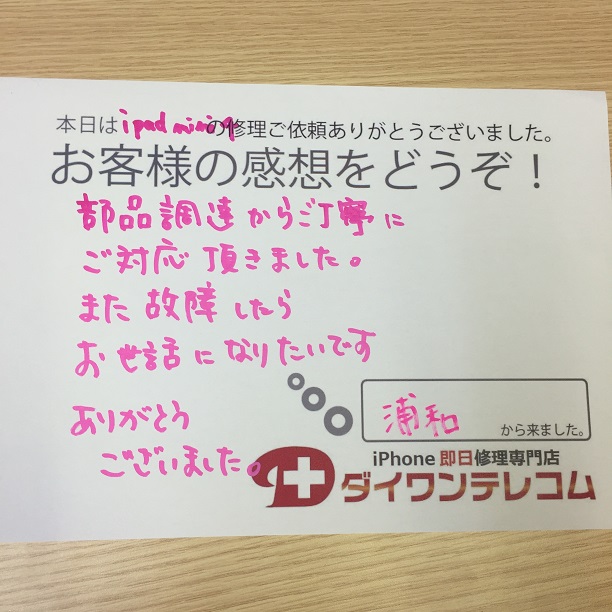 本日はipad miniの修理ご依頼ありがとうございました。
お客様の感想をどうぞ！
部品調達からご丁寧に
ご対応頂きました。
また故障したら
お世話になりたいです
ありがとう
ございました。
浦和から来ました。
iPhone 即日修理専門店
ダイワンテレコム